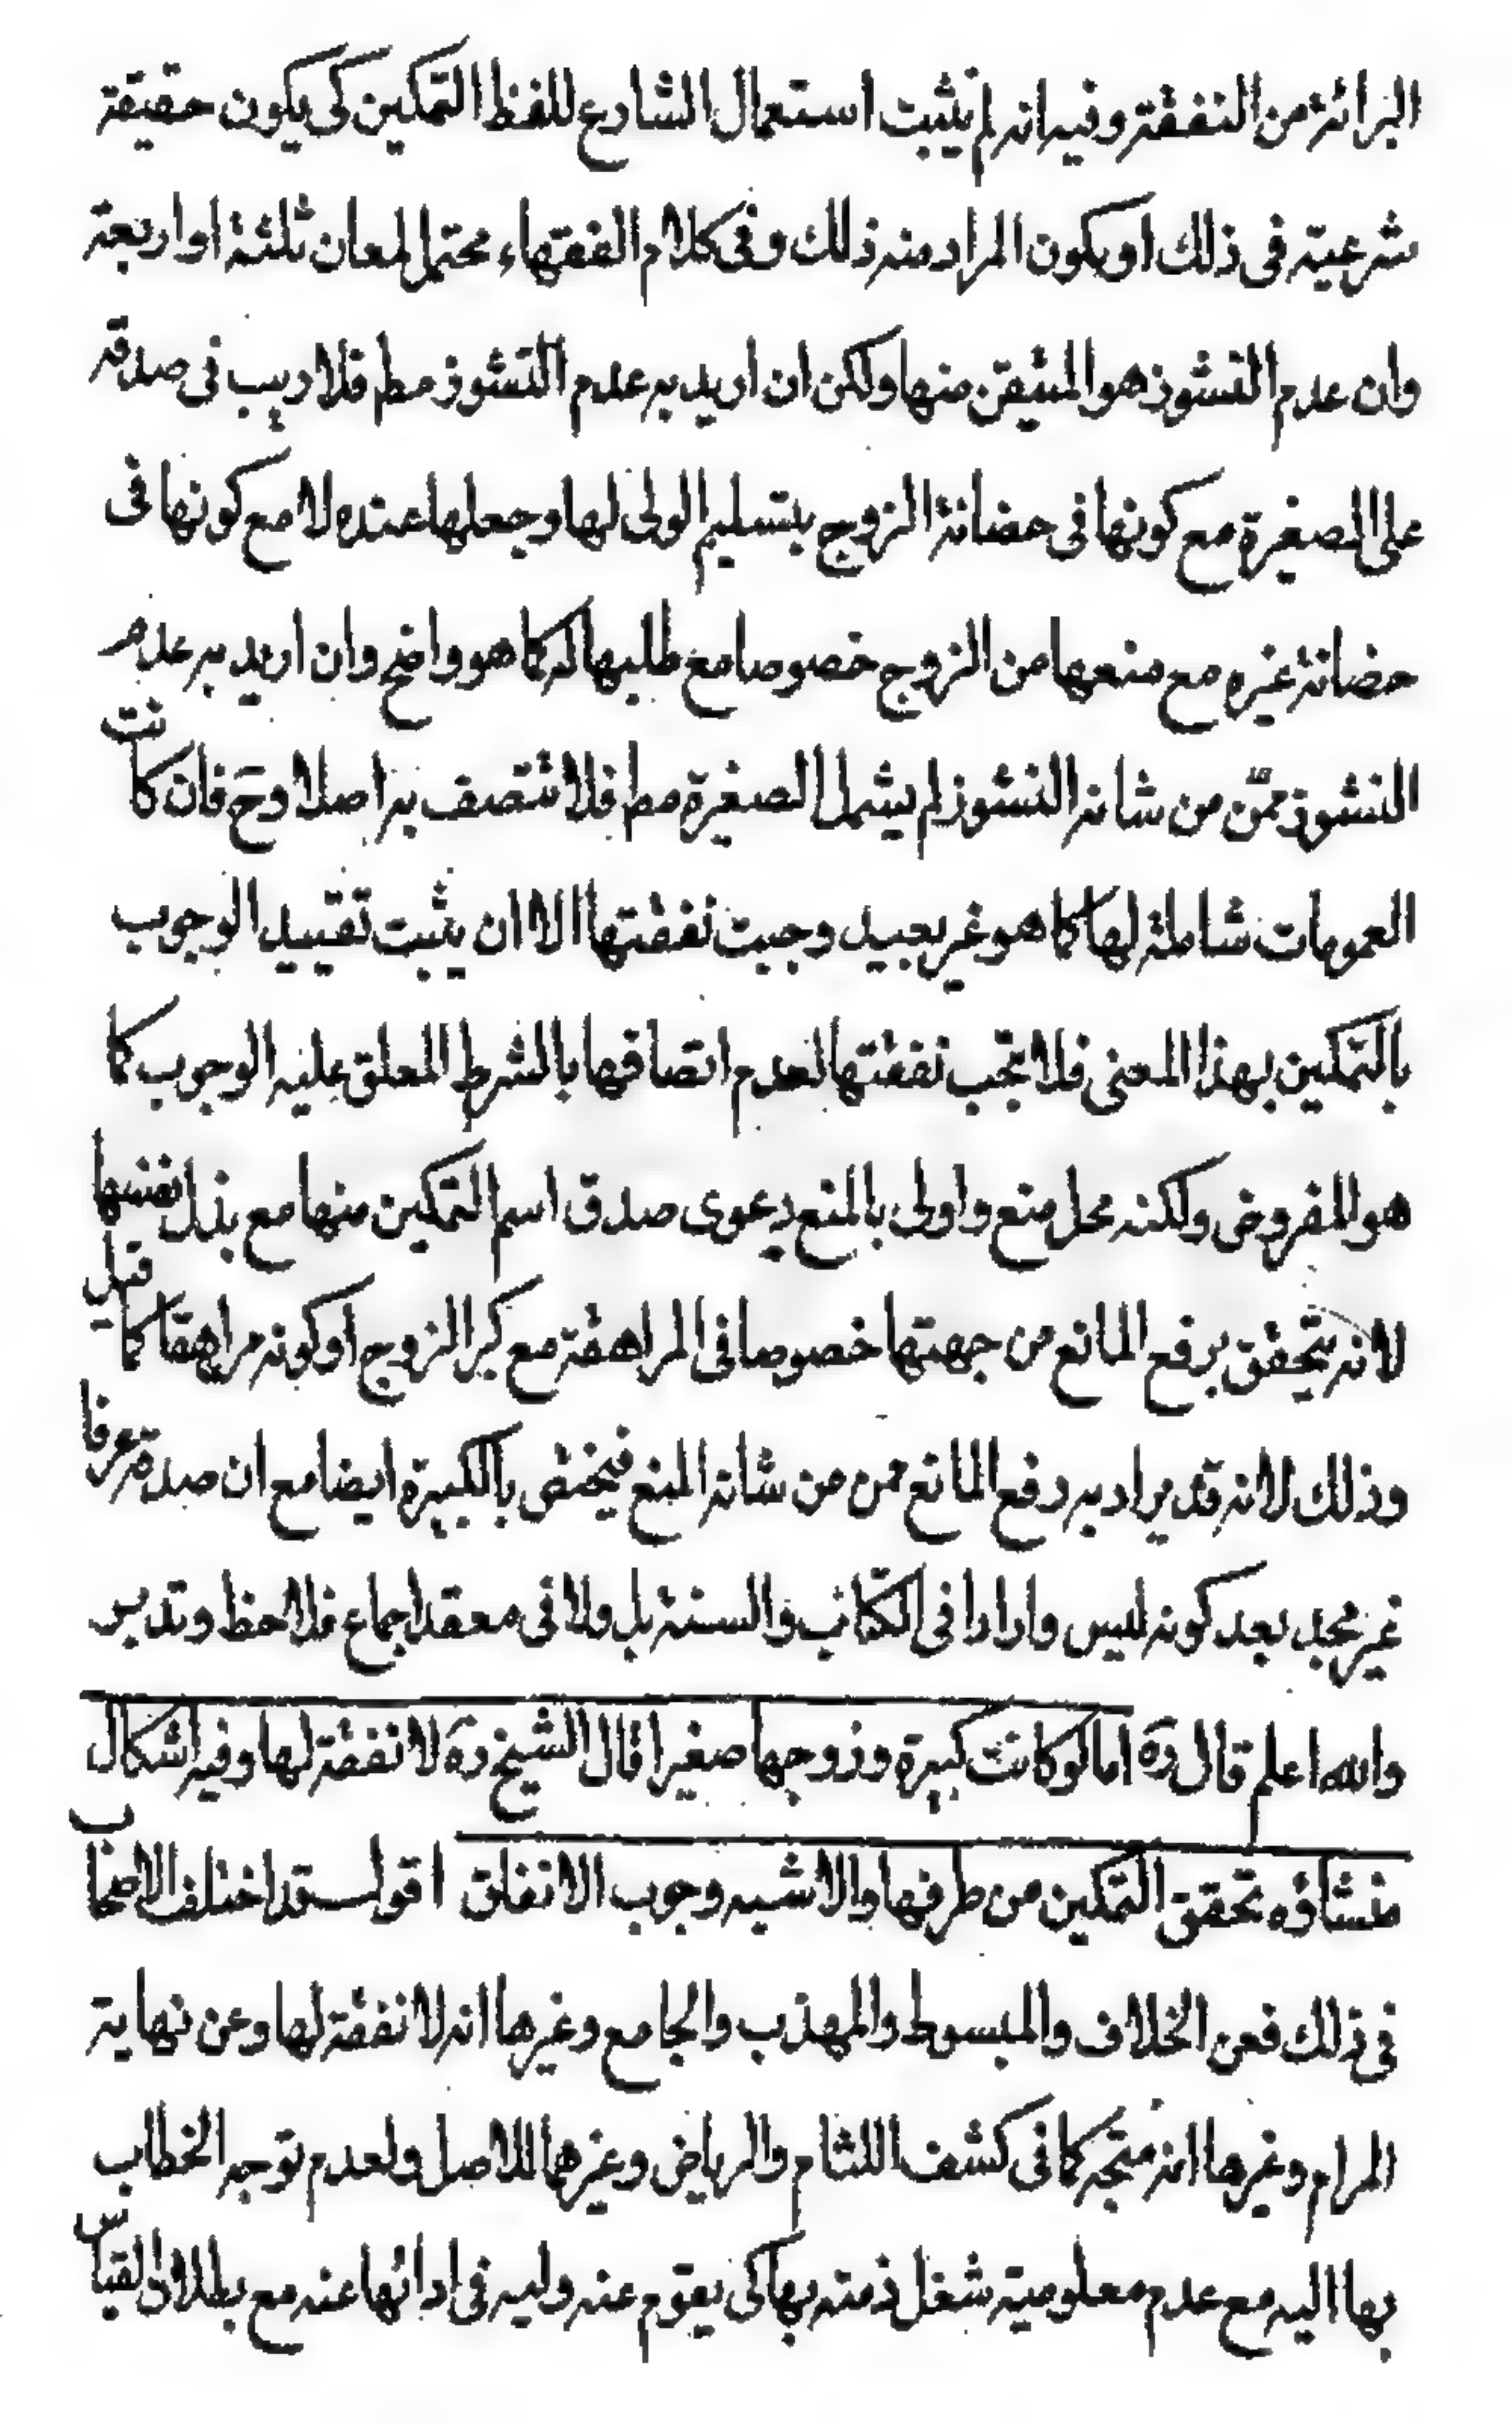 البرائة من النفقة وفيه انه لم يثبت استعمال الشارع للفظ التمكين كى يكون حقيقة
شرعية فى ذلك او يكون المراد منه ذلك وفى كلام الفقهاء محتمل لمعان ثلثة او اربعة
وان عدم النشوز هو المتيقن منها ولكن ان اريد به عدم النشوز مط فلا ريب فى صدقه
على الصغيرة مع كونها فى حضانة الزوج بتسليم الولى لها وجعلها عنده لا مع كونها فى
حضانة غيره مع منعها من الزوج خصوصا مع طلبها له كما هو واضح وان اريد به عدم
النشوز ممّن من شانه النشوز لم يشمل الصغيرة مط فلا تتصف به اصلا وحَ فان كانت
العمومات شاملة لها كما هو غير بعيد وجبت نفقتها الا ان يثبت تقييد الوجوب
بالتمكين بهذا المعنى فلا تجب نفقتها لعدم اتصافها بالشرط المعلق عليه الوجوب كما
هو المفروض ولكنه محل منع واولى بالمنع دعوى صدق اسم التمكين منها مع بذل نفسها
لانه يتحقق برفع المانع من جهتها خصوصا فى المراهقة مع كبر الزوج او كونه مراهقا كما قيل
وذلك لانه قد يراد به رفع المانع ممن من شانه المنع فيختص بالكبيرة ايضا مع ان صدقه عرفا
غير مجد بعد كونه ليس واردا فى الكتاب والسنة بل ولا فى معقد اجماع فلاحظ وتدبر
والله اعلم قال رَه اما لو كانت كبيرة وزوجها صغيرا قال الشيخ رَه لا نفقة لها وفيه اشكال
منشاؤه تحقق التمكين من طرفها والاشبه وجوب الانفاق اقول قد اختلف الاصحاب
فى ذلك فعن الخلاف والمبسوط والمهذب والجامع وغيرها انه لا نفقة لها وعن نهاية
المرام وغيرها انه متجه كما فى كشف اللثام والرياض وغيرهما للاصل ولعدم توجه الخطاب
بها اليه مع عدم معلومية شغل ذمته بها كى يقوم عنه وليه فى ادائها عنه مع بطلان القياس